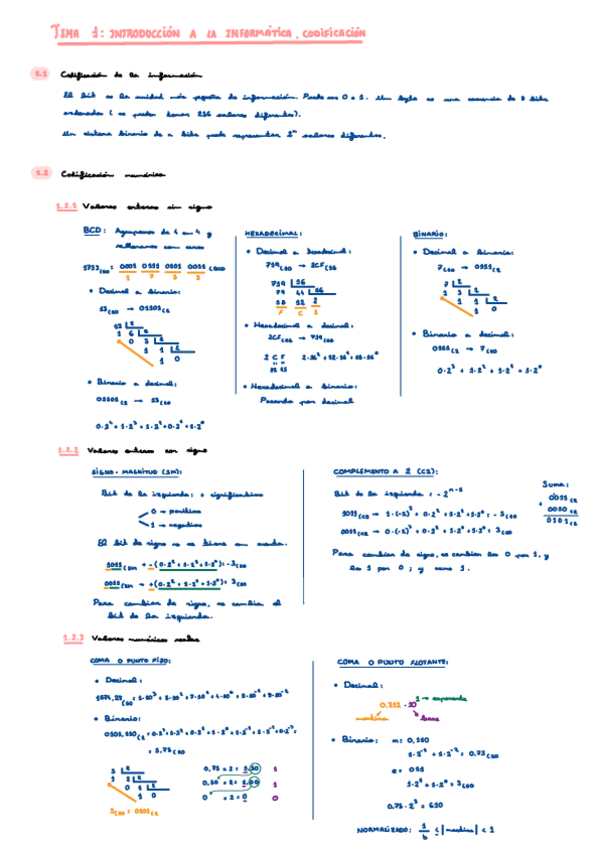 TEMA 1: INTRODUCCIÓN A LA INFORMÁTICA. CODIFICACIÓN
1.1 Codificación de la información
El bit es la unidad más pequeña de información. Puede ser 0 o 1. Un byte es una secuencia de 8 bits
ordenados (se pueden tener 256 valores diferentes).
Un sistema binario de n bits puede representar 2^n valores diferentes.
1.2 Codificación numérica
1.2.1 Valores enteros sin signo
BCD: Agrupamos de 4 en 4 y
rellenamos con ceros
0001 0111 0101 0011
• Decimal a binario:
13(10 → 01101(2
• Binario a decimal:
01101(2 → 13(10
HEXADECIMAL:
• Decimal a hexadecimal:
719(10 → 2CF(16
719 16
79 44 16
15 12 2
F C 2
• Hexadecimal a decimal:
2CF(16 → 719(10
2 C F 2·16² + 12·16¹ + 15·16⁰
12 15
• Hexadecimal a binario:
Pasando por decimal
BINARIO:
• Decimal a binario:
7(10 → 0111(2
• Binario a decimal:
0111(2 → 7(10
0·2³ + 1·2² + 1·2¹ + 1·2⁰
1.2.2 Valores enteros con signo
SIGNO-MAGNITUD (SM):
Bit de la izquierda: + significativo
0 → positivo
1 → negativo
El bit de signo no se tiene en cuenta.
1011(SM = -(0·2² + 1·2¹ + 1·2⁰) = -3(10
0011(SM = +(0·2² + 1·2¹ + 1·2⁰) = 3(10
Para cambiar de signo, se cambia el
bit de la izquierda.
COMPLEMENTO A 2 (C2):
Bit de la izquierda: -2^(n-1)
Para cambiar de signo, se cambian los 0 por 1, y
los 1 por 0; y sumo 1.
Suma:
+ 0011(2
0010(2
0101(2
1.2.3 Valores numéricos reales
COMA O PUNTO FIJO:
• Decimal:
• Binario:
= 5,75(10
0,75 × 2 = 1,50 1
0,50 × 2 = 1,00 1
0 × 2 = 0 0
5(10 = 0101(2
COMA O PUNTO FLOTANTE:
• Decimal:
1 → exponente
mantisa
base
• Binario: m = 0,110
1·2⁻¹ + 1·2⁻² = 0,75(10
e = 011
1·2¹ + 1·2⁰ = 3(10
0,75·2³ = 6(10
NORMALIZADO: 1/b ≤ |mantisa| < 1